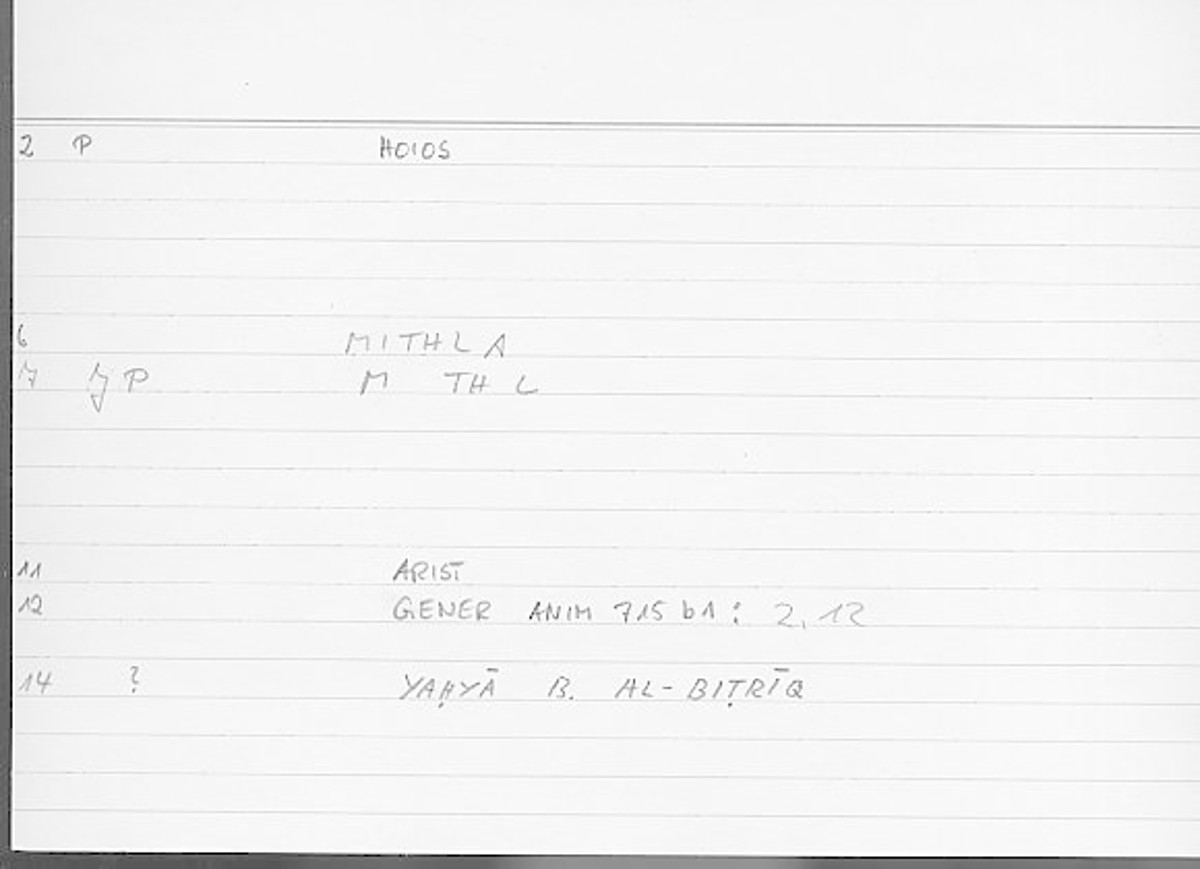 2 P HOIOS
6 MITHLA
7 P M TH L
11 ARIST
12 GENER ANIM 715 b1 : 2, 12
14 ? YAḤYĀ B. AL-BIṬRĪQ